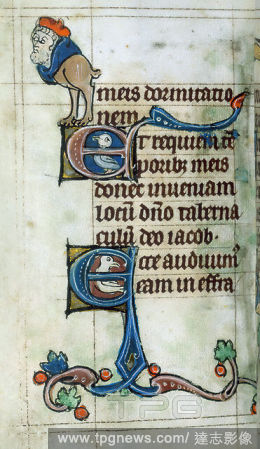 meis dormitatio
nem·
Et requiem tē
poribȝ meis
donec inueniam
locū dño taberna
culū deo iacob·
Ecce audiuim᷒
eam in effra
TPG
www.tpgnews.com/達志影像